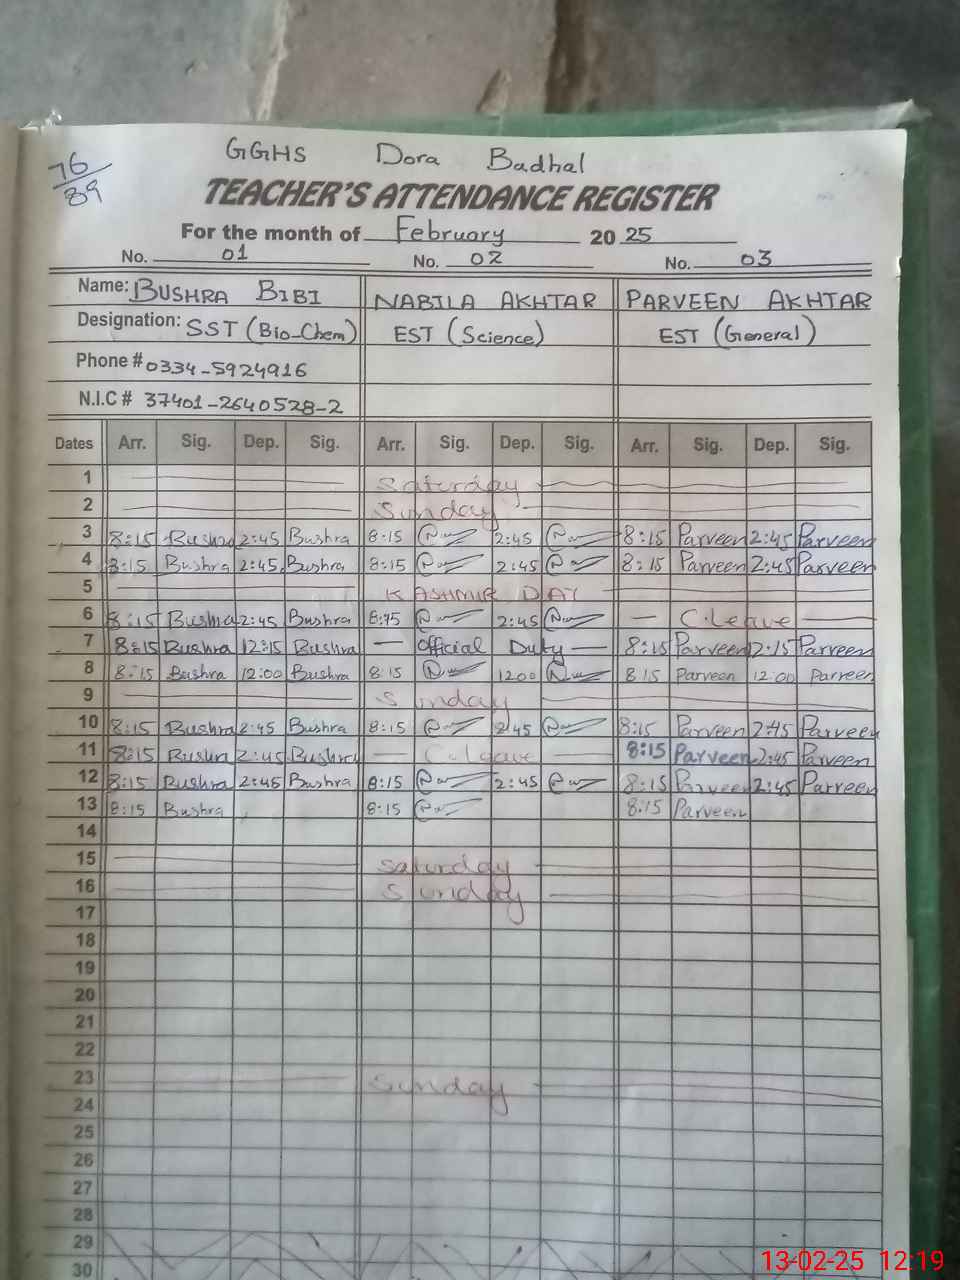 76/89
GGHS Dora Badhal
TEACHER'S ATTENDANCE REGISTER
For the month of February 20 25
No. 01 No. 02 No. 03
Name: BUSHRA BIBI NABILA AKHTAR PARVEEN AKHTAR
Designation: SST (Bio_Chem) EST (Science) EST (General)
Phone # 0334-5924916
N.I.C # 37401-2640528-2
Dates Arr. Sig. Dep. Sig. Arr. Sig. Dep. Sig. Arr. Sig. Dep. Sig.
1 Saturday
2 Sunday
3 8:15 Bushra 2:45 Bushra 8:15 2:45 8:15 Parveen 2:45 Parveen
4 8:15 Bushra 2:45 Bushra 8:15 2:45 8:15 Parveen 2:45 Parveen
5 KASHMIR DAY
6 8:15 Bushra 2:45 Bushra 8:15 2:45 — C.Leave —
7 8:15 Bushra 12:15 Bushra — Official Duty — 8:15 Parveen 12:15 Parveen
8 8:15 Bushra 12:00 Bushra 8:15 1200 8:15 Parveen 12:00 Parveen
9 Sunday
10 8:15 Bushra 2:45 Bushra 8:15 2:45 8:15 Parveen 2:45 Parveen
11 8:15 Bushra 2:45 Bushra — C.leave — 8:15 Parveen 2:45 Parveen
12 8:15 Bushra 2:45 Bushra 8:15 2:45 8:15 Parveen 2:45 Parveen
13 8:15 Bushra 8:15 8:15 Parveen
14
15 Saturday
16 Sunday
17
18
19
20
21
22
23 Sunday
24
25
26
27
28
29
30
13-02-25 12:19